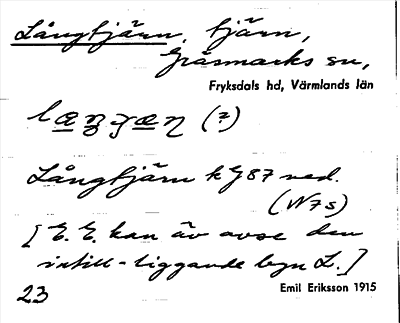 Långtjärn, tjärn,
Gräsmarks sn,
Fryksdals hd, Värmlands län
(?)
Långtjärn k G 87 ned.
(N 7 s)
[E. E. kan äv avse den
intill-liggande byn L.]
23
Emil Eriksson 1915